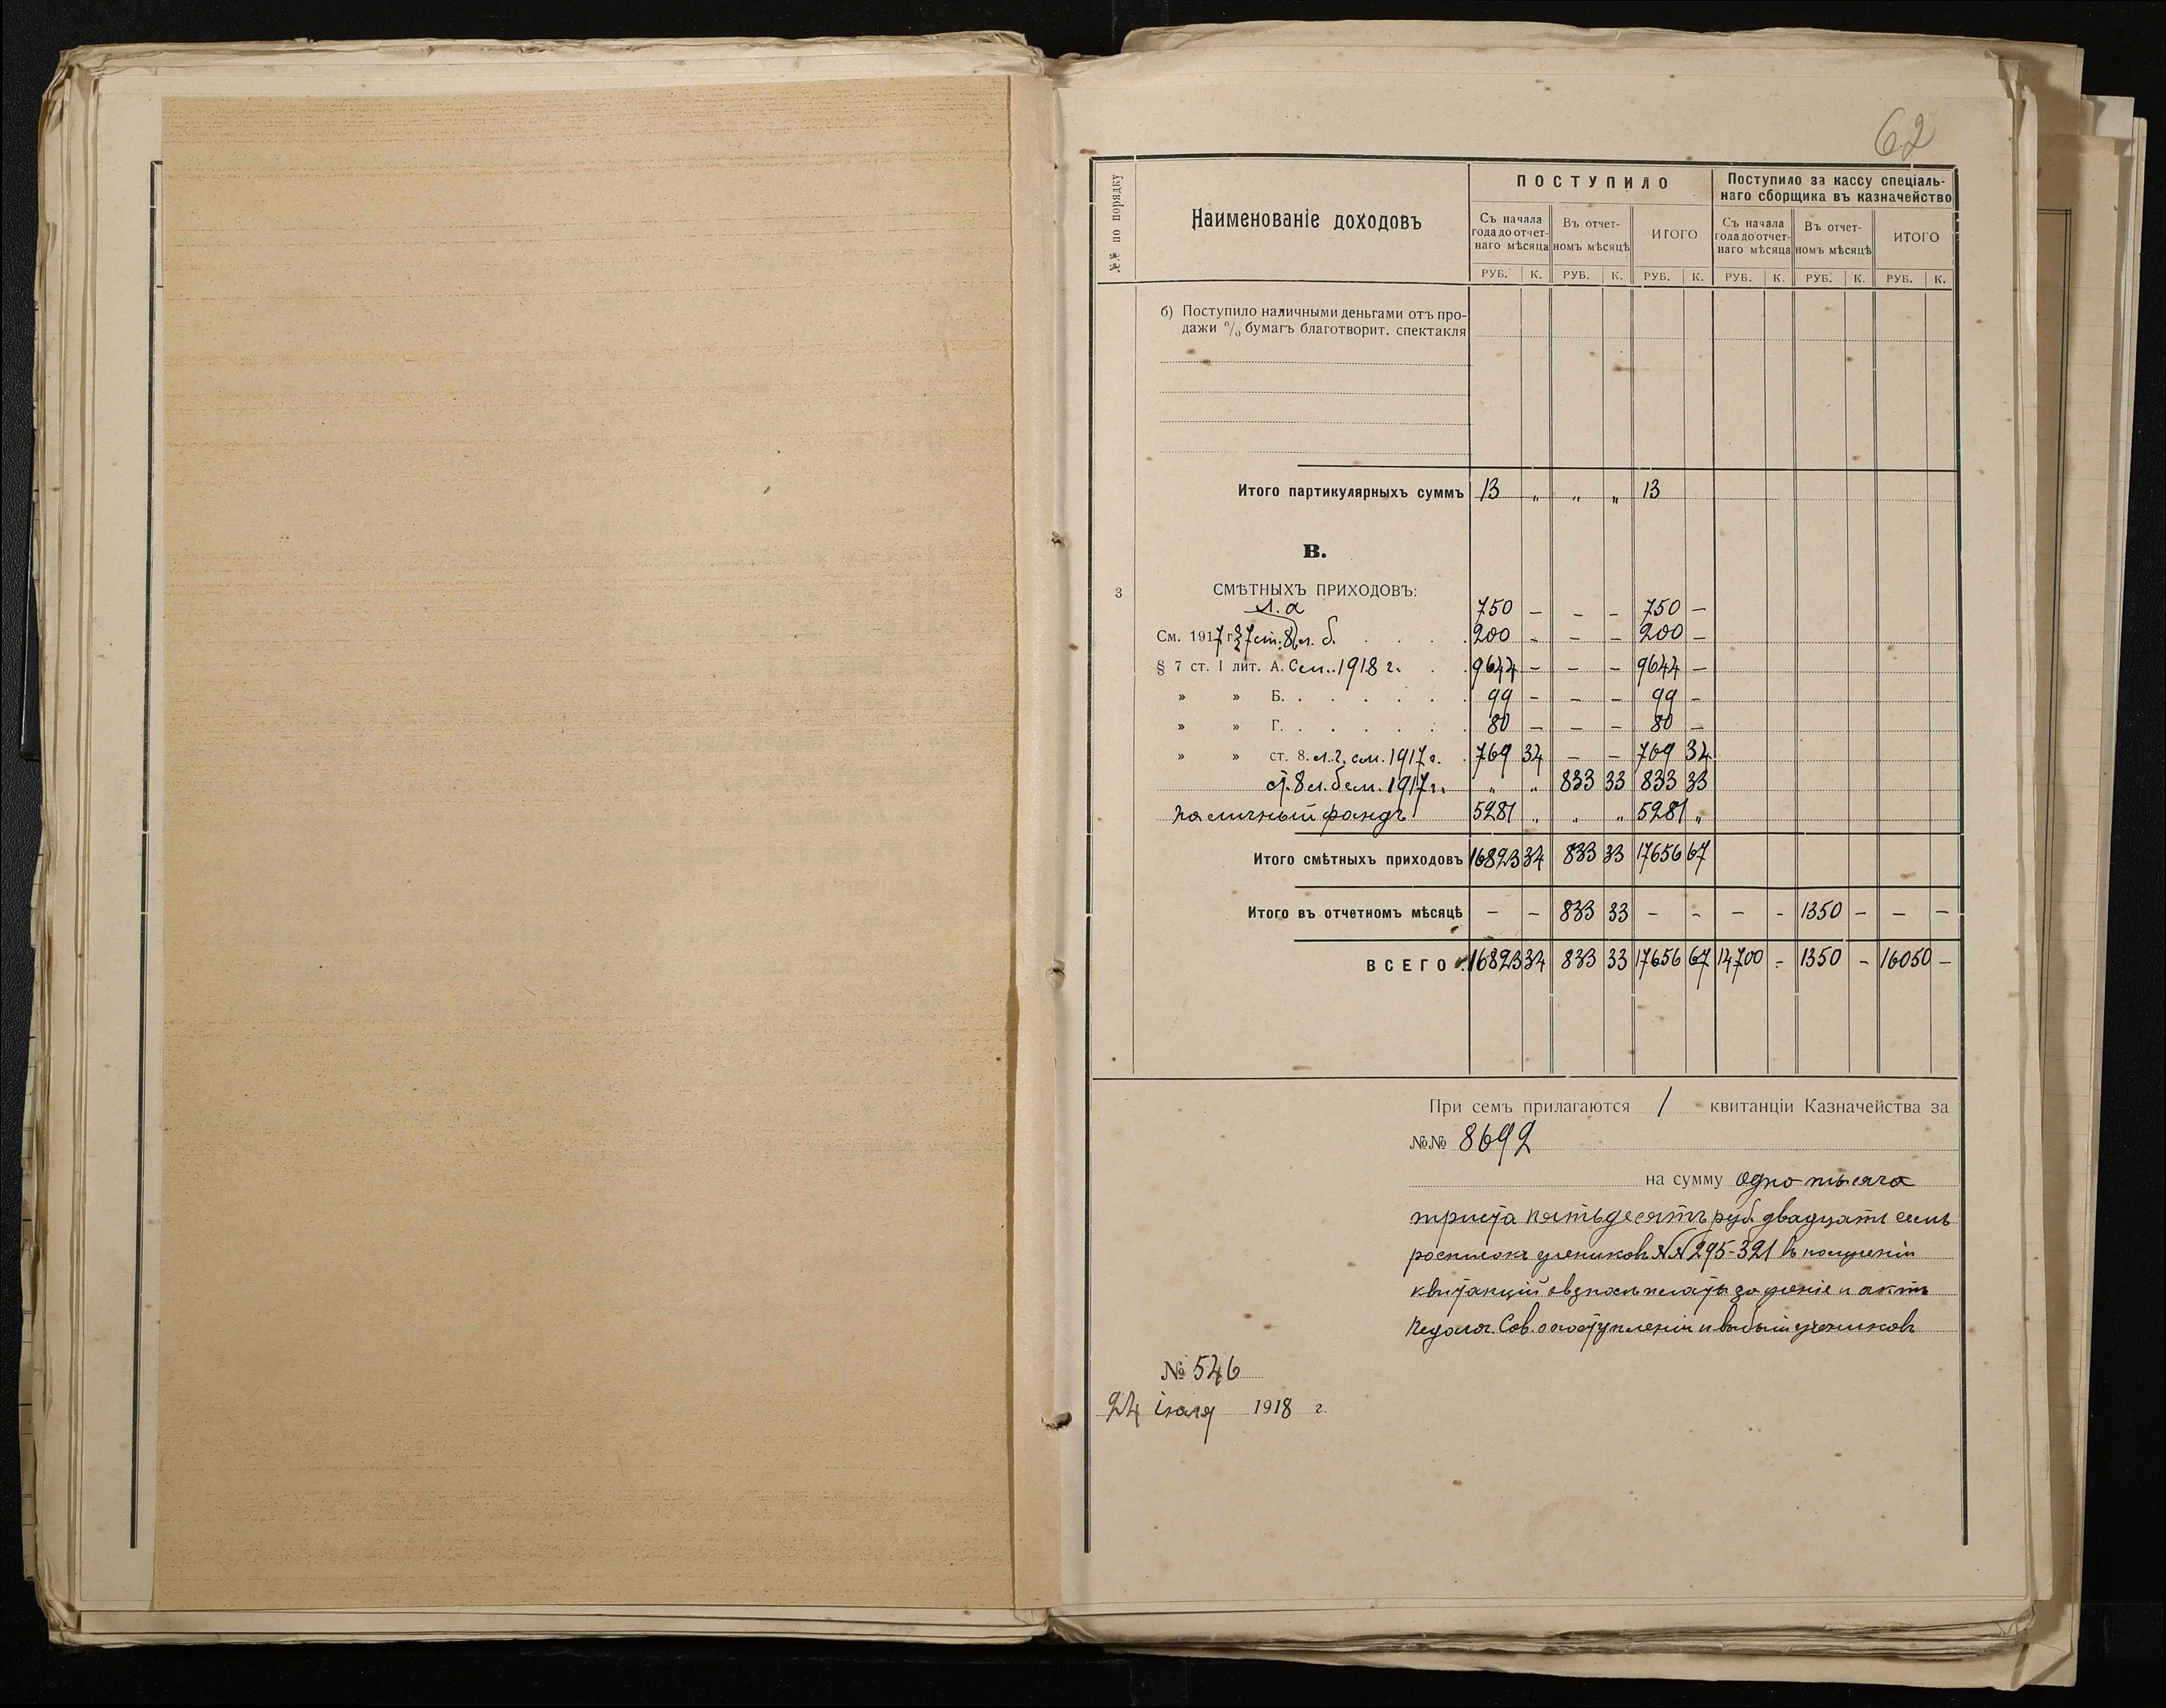 62
№№ по порядку
Наименованіе доходовъ
ПОСТУПИЛО
Поступило за кассу спеціаль-
наго сборщика въ казначейство
Съ начала
года до отчет-
наго мѣсяца
Въ отчет-
номъ мѣсяцѣ
ИТОГО
Съ начала
года до отчет-
наго мѣсяца
Въ отчет-
номъ мѣсяцѣ
ИТОГО
РУБ. К. РУБ. К. РУБ. К. РУБ. К. РУБ. К. РУБ. К.
б) Поступило наличными деньгами отъ про-
дажи % бумагъ благотворит. спектакля
Итого партикулярныхъ суммъ 13 „ „ „ 13
В.
3 СМѢТНЫХЪ ПРИХОДОВЪ:
л. а 750 — — — 750 —
См. 1917 г. § 7 ст. 8 л. б. 200 — — — 200 —
§ 7 ст. I лит. А. См. 1918 г. 9644 — — — 9644 —
» » Б. 99 — — — 99 —
» » Г. 80 — — — 80 —
» » ст. 8. л. г. см. 1917 г. 769 34 — — 769 34
ст. 8 л. б см. 1917 г. „ „ 833 33 833 33
наличный фондъ 5281 „ „ „ 5281 „
Итого смѣтныхъ приходовъ 16823 34 833 33 17656 67
Итого въ отчетномъ мѣсяцѣ — — 833 33 — — — — 1350 — — —
ВСЕГО 16823 34 833 33 17656 67 14700 — 1350 — 16050 —
При семъ прилагаются 1 квитанціи Казначейства за
№№ 8692
на сумму одна тысяча
триста пятьдесятъ руб. двадцать семь
росписокъ учениковъ №№ 295-321 въ полученіи
квитанцій о взносѣ платы за ученіе и актъ
Педагог. Сов. о поступленіи и выбытіи учениковъ
№ 546
24 іюля 1918 г.